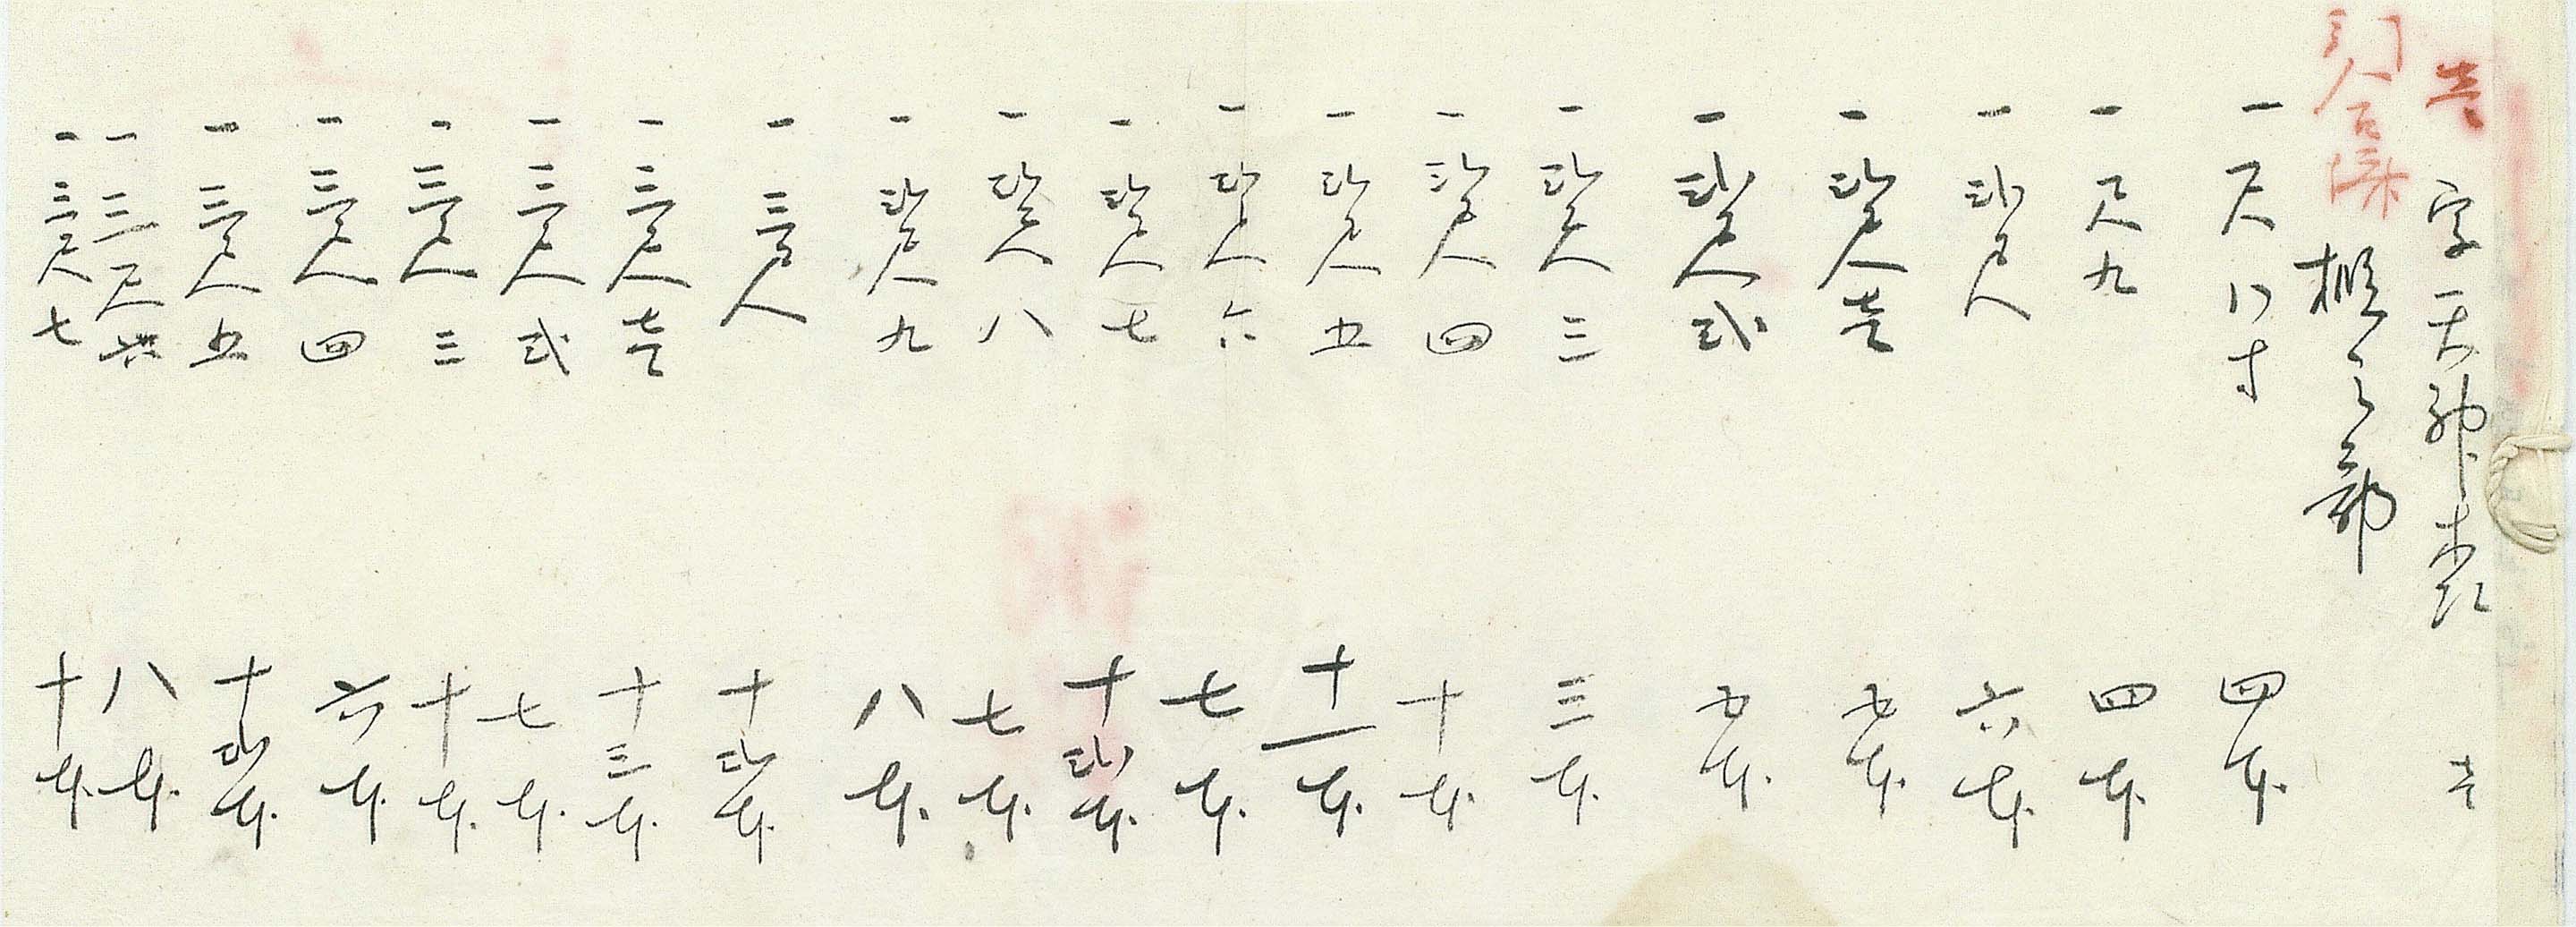 字天神 壱
之部
一 尺八寸 四本
一 尺九 四本
一 弐尺 六本
一 弐尺壱 五本
一 弐尺弐 五本
一 弐尺三 三本
一 弐尺四 十本
一 弐尺五 十一本
一 弐尺六 七本
一 弐尺七 十弐本
一 弐尺八 七本
一 弐尺九 八本
一 三尺 十弐本
一 三尺壱 十三本
一 三尺弐 七本
一 三尺三 十本
一 三尺四 六本
一 三尺五 十弐本
一 三尺六 八本
一 三尺七 十本